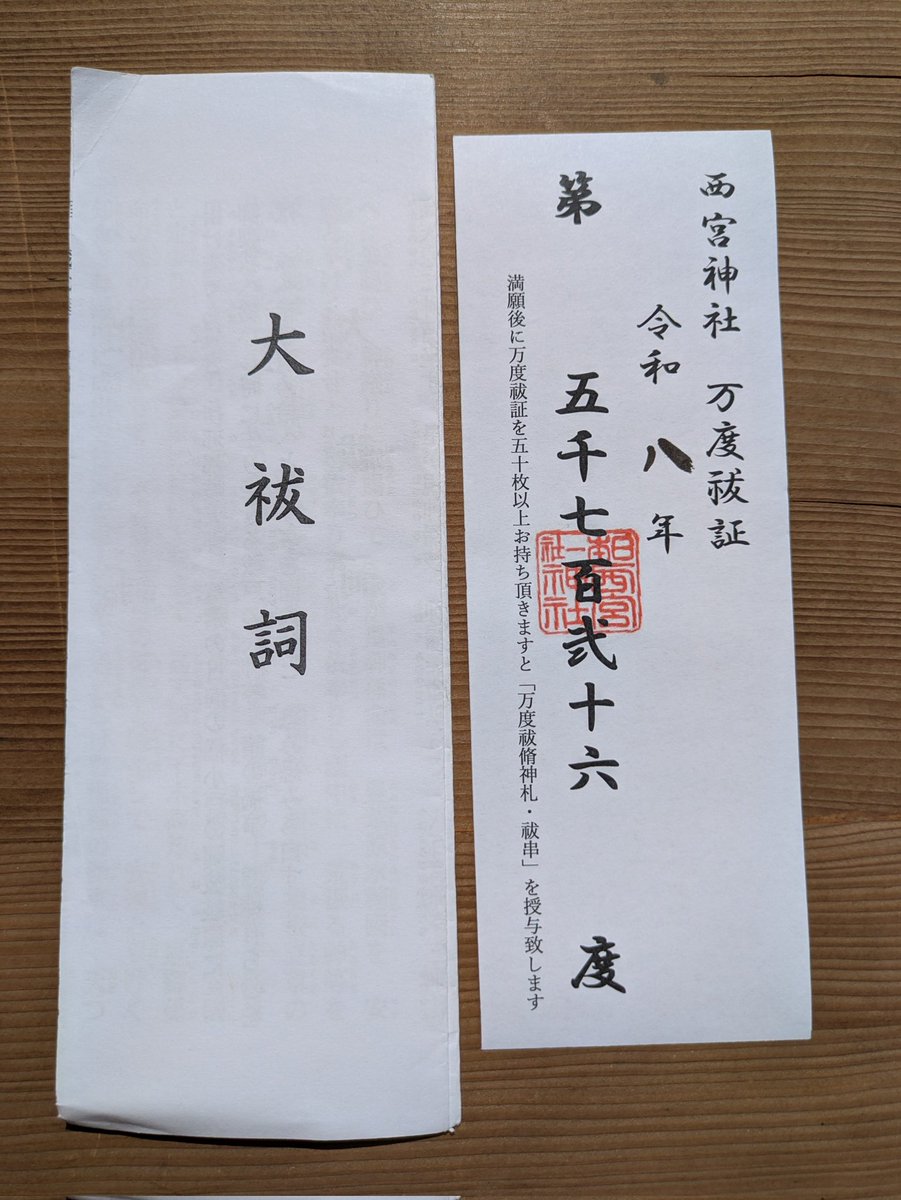 大祓詞
西宮神社 万度祓証
令和八年
第 五千七百弐十六 度
満願後に万度祓証を五十枚以上お持ち頂きますと「万度祓脩神札・祓串」を授与致します